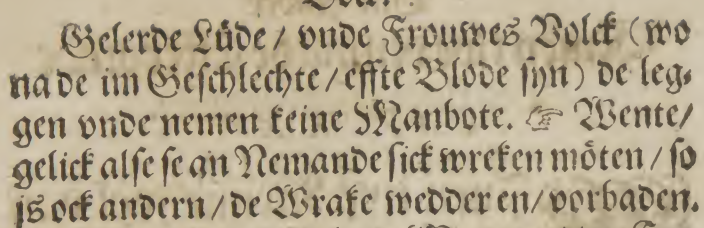 Gelerde Lüde / vnde Frouwes Volck (wo
na de im Geschlechte / effte Blode syn) de leg-
gen vnde nemen keine Manbote. ☞ Wente /
gelick alse se an Nemande sick wreken möten / so
is ock andern / de Wrake wedder en / vorbaden.